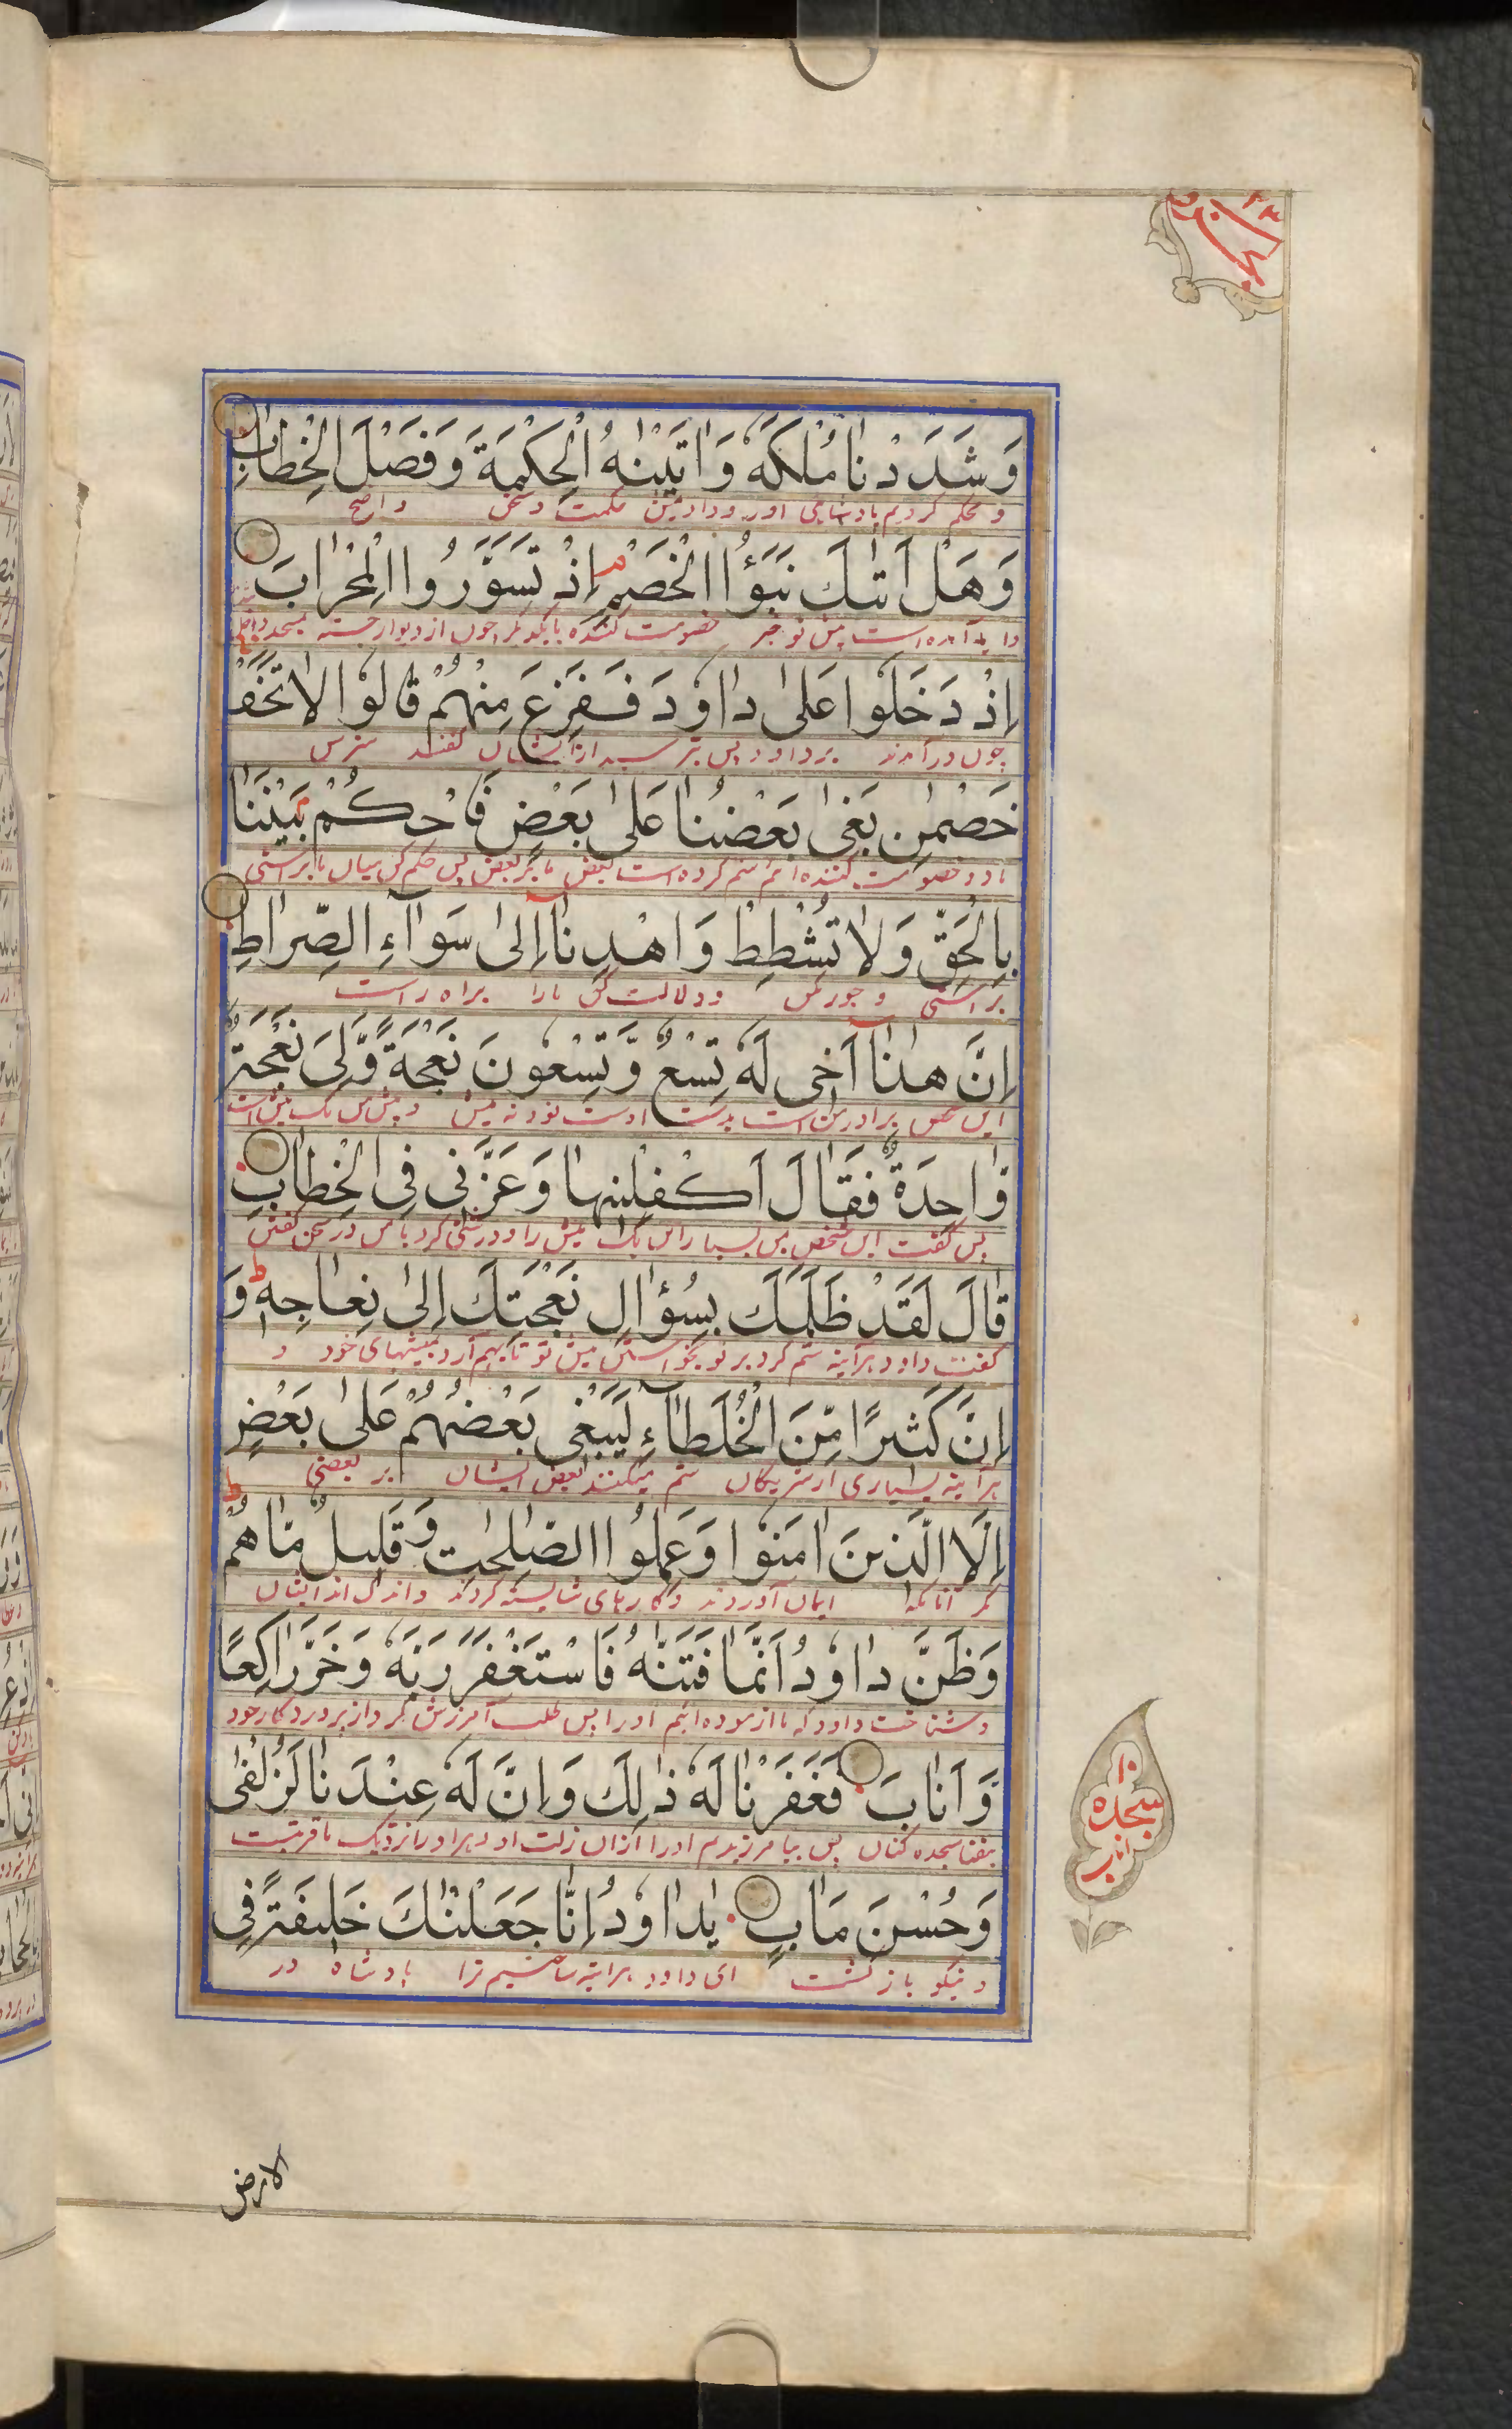 الجزو ٢٣
وَشَدَدْنَا مُلْكَهٗ وَاٰتَيْنٰهُ الْحِكْمَةَ وَفَصْلَ الْخِطَابِ
و محکم کردیم پادشاهی اورا ودادیمش حکمت وسخن واضح
وَهَلْ اَتٰىكَ نَبَؤُا الْخَصْمِ م اِذْ تَسَوَّرُوا الْمِحْرَابَ
وایا آمده است پیش تو خبر خصومت کننده بایکدیگر چون از دیوار جسته بمسجد
اِذْ دَخَلُوْا عَلٰى دَاوٗدَ فَفَزِعَ مِنْهُمْ قَالُوْا لَا تَخَفْ
چون درآمدند بر داود پس بترسید از ایشان گفتند مترس
خَصْمٰنِ بَغٰى بَعْضُنَا عَلٰى بَعْضٍ فَاحْكُمْ بَيْنَنَا
ما دو خصومت کننده ایم ستم کرده است بعض ما بر بعض پس حکم کن میان ما براستی
بِالْحَقِّ وَلَا تُشْطِطْ وَاهْدِنَآ اِلٰى سَوَآءِ الصِّرَاطِ
براستی و جور مکن ودلالت کن مارا براه راست
اِنَّ هٰذَآ اَخِى لَهٗ تِسْعٌ وَّتِسْعُوْنَ نَعْجَةً وَّلِىَ نَعْجَةٌ
این شخص برادر من است بدست اوست نود نه میش و پیش من یک میش است
وَّاحِدَةٌ فَقَالَ اَكْفِلْنِيْهَا وَعَزَّنِى فِى الْخِطَابِ
پس گفت این شخص بمن بسپار این یک میش را ودرشتی کرد با من در سخن گفتن
قَالَ لَقَدْ ظَلَمَكَ بِسُؤَالِ نَعْجَتِكَ اِلٰى نِعَاجِهٖ ط وَ
گفت داود هرآینه ستم کرد بر تو بخواستن میش تو تا بهم آرد بمیشهای خود و
اِنَّ كَثِيْرًا مِّنَ الْخُلَطَآءِ لَيَبْغِى بَعْضُهُمْ عَلٰى بَعْضٍ
هرآینه بسیاری از شریکان ستم میکنند بعض ایشان بر بعضی
اِلَّا الَّذِيْنَ اٰمَنُوْا وَعَمِلُوا الصّٰلِحٰتِ وَقَلِيْلٌ مَّا هُمْ ط
مگر آنانکه ایمان آوردند وکارهای شایسته کردند واندک اند ایشان
وَظَنَّ دَاوٗدُ اَنَّمَا فَتَنّٰهُ فَاسْتَغْفَرَ رَبَّهٗ وَخَرَّ رَاكِعًا
وشناخت داود که ما آزموده ایم اورا پس طلب آمرزش کرد از پروردگار خود
وَّاَنَابَ فَغَفَرْنَا لَهٗ ذٰلِكَ وَاِنَّ لَهٗ عِنْدَنَا لَزُلْفٰى
بیفتاد سجده کنان پس بیامرزیدیم اورا آن زلت اورا نزدیک ما قربتست
وَحُسْنَ مَاٰبٍ يٰدَاوٗدُ اِنَّا جَعَلْنٰكَ خَلِيْفَةً فِى
ونیکو بازگشت ای داود هرآینه ساختیم ترا پادشاه در
١٠
سجده
الارض